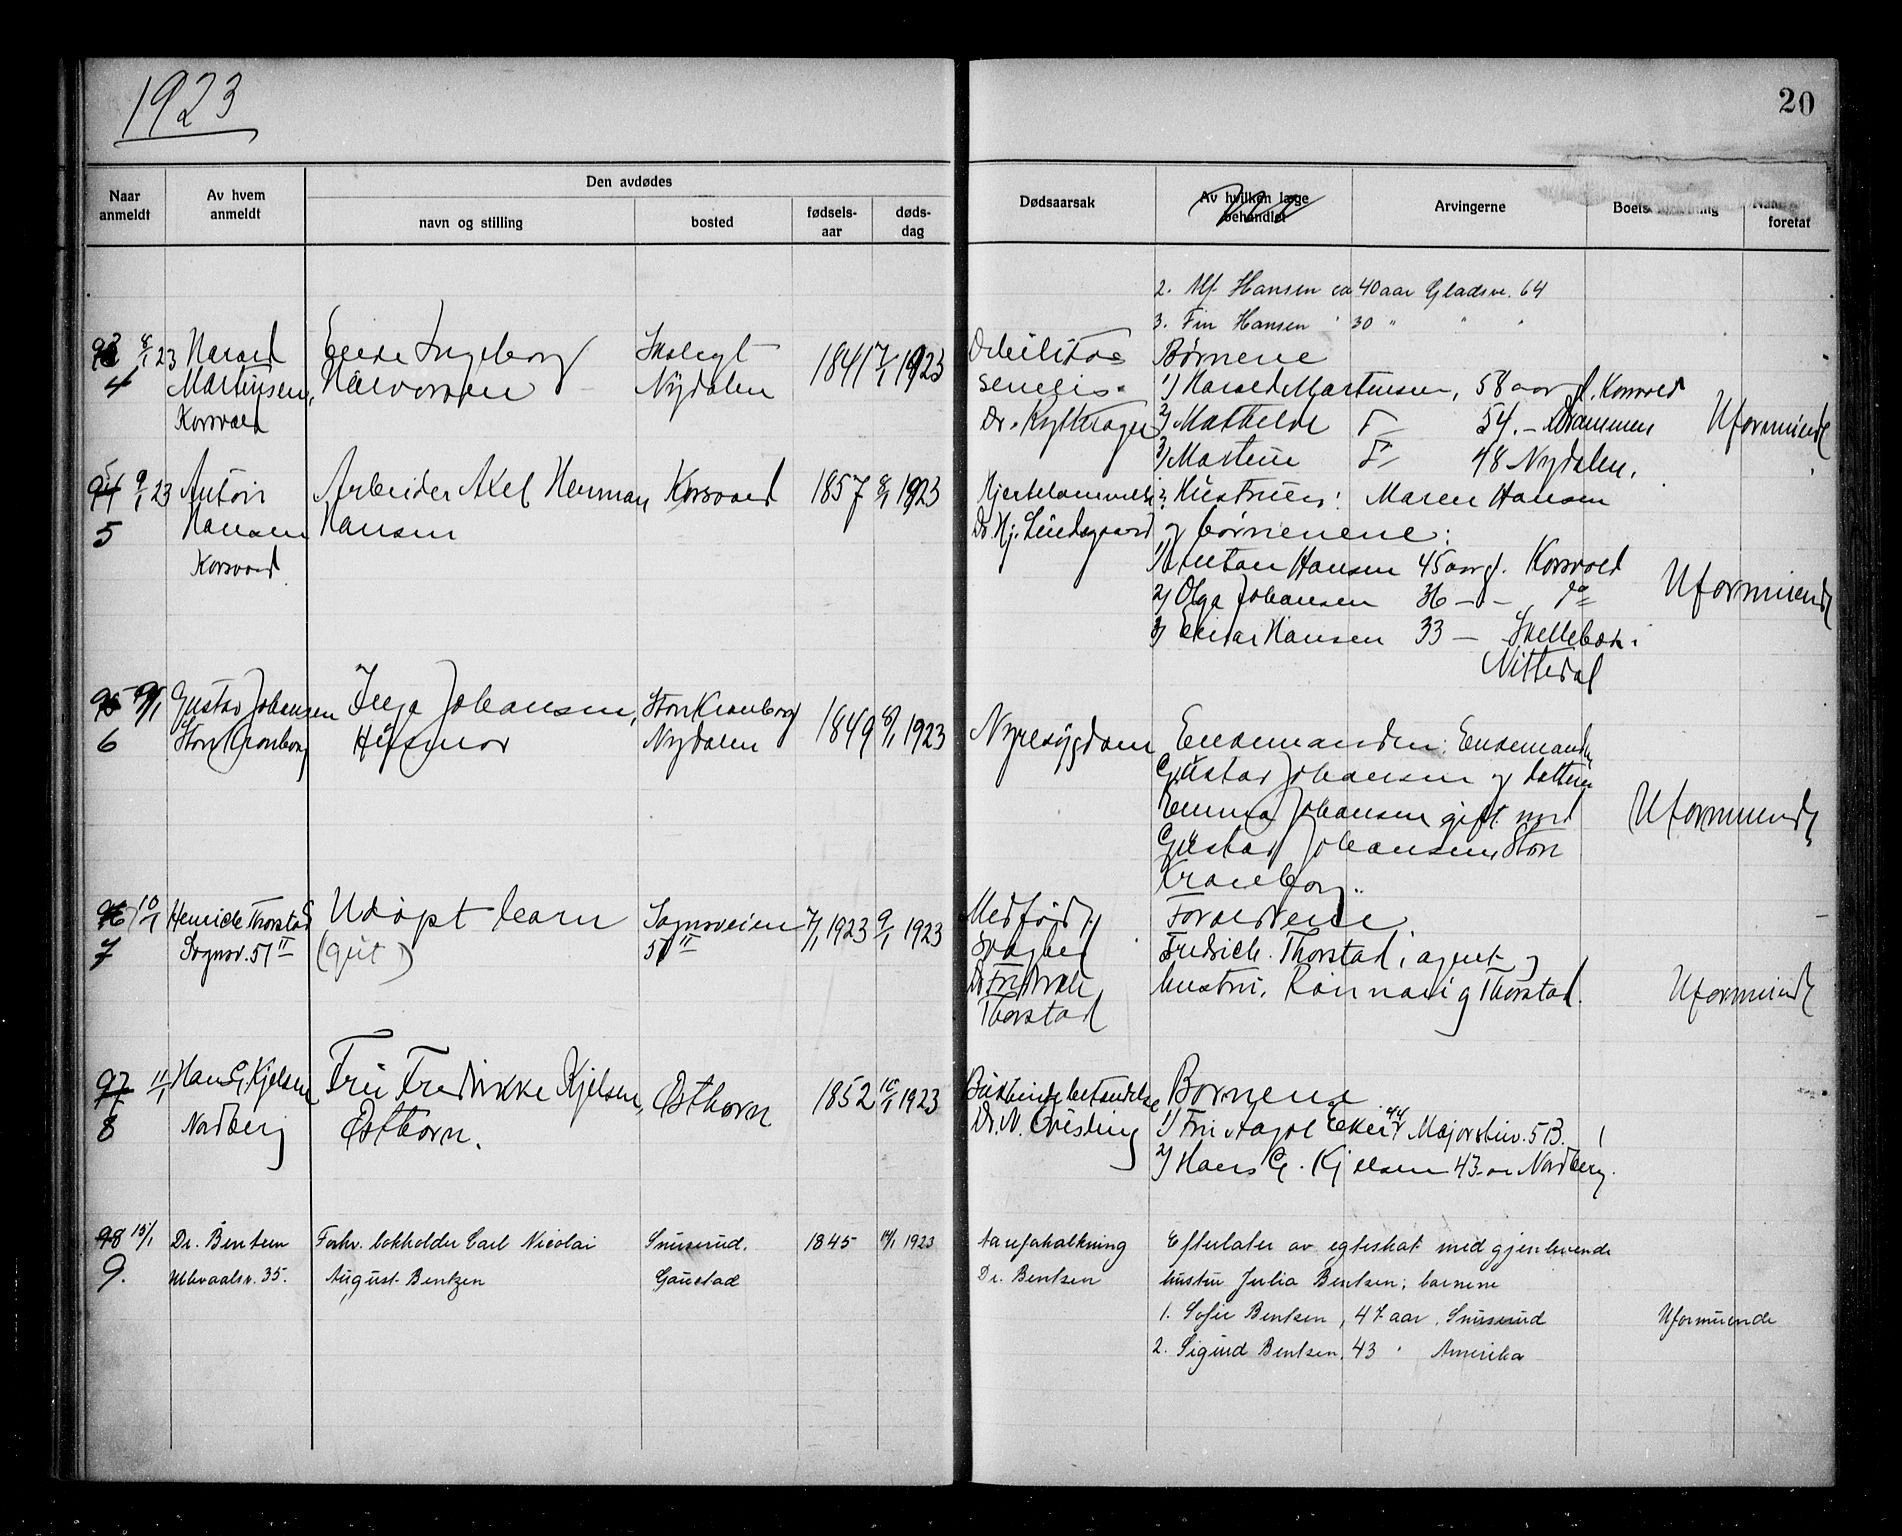 1923
20
Naar anmeldt
Av hvem anmeldt
Den avdødes
navn og stilling
bosted
fødsels-aar
døds-dag
Dødsaarsak
Av hvilken læge behandlet
Arvingerne
Boets
foretat
2. Alf Hansen ca 40 aar Gladsv. 64
3. Fin Hansen " 30 " " "
93 8/1 23 Harald Ingeborg 1841 7/1 1923 Debilitas Børnene
4 Martinsen, Halvorsen Nydalen senilis. 1) Harald Martinsen, 58 aar g. Korsvold
Korsvold Dr. 2) Mathilde 54 - Drammen Uformuende
3) Martine 48 Nydalen.
94 9/1 23 Anton Arbeider Axel Herman Korsvold 1857 8/1 1923 Hustruen: Maren Hansen
5 Hansen Hansen Dr. Hj. Lundsgaard og børnene:
Korsvold 1) Anton Hansen 45 aar g. Korsvold
2) Olga Johansen 36 - - " do Uformuende
3) Einar Hansen 33 - Skillebæk i
Nittedal
95 9/1 Gustav Johansen Inga Johansen, Store Kronborg 1849 8/1 1923 Nyresygdom Enkemanden: Enkemanden
6 Store Kronborg Husmor Nydalen Gustav Johansen og datteren
Emma Johansen gift med Uformuende
Gustav Johansen, Store
Kronborg.
96 10/1 Henrik Thorstad Udøpt barn Sognsveien 7/1 1923 9/1 1923 Medfødt Forældrene
7 Sognsv. 57 II (gut) 57 II svaghed Fredrick Thorstad, agent og
Dr. Fredrick hustru, Rannavig Thorstad. Uformuende
Thorstad
97 11/1 Hans G. Kjelsen Fru Fredrikke Kjelsen, Østhorn 1852 10/1 1923 Børnene
8 Nordberg Østhorn. Dr. N. Qvisling 1) Fru Aagot 44 Majorstuv. 5 B.
2) Hans G. Kjelsen 43 aar Nordberg.
98 15/1 Dr. Bentsen Forhv. bokholder Carl Nicolai Snuserud. 1845 14/1 1923 Aareforkalkning Efterlater av egteskab med gjenlevende
9. Ullevaalsv. 35. August Bentzen Gaustad Dr. Bentsen hustru Julia Bentsen, barnene
1. Sofie Bentsen, 47 aar, Snuserud Uformuende
2. Sigurd Bentsen, 43 " Amerika